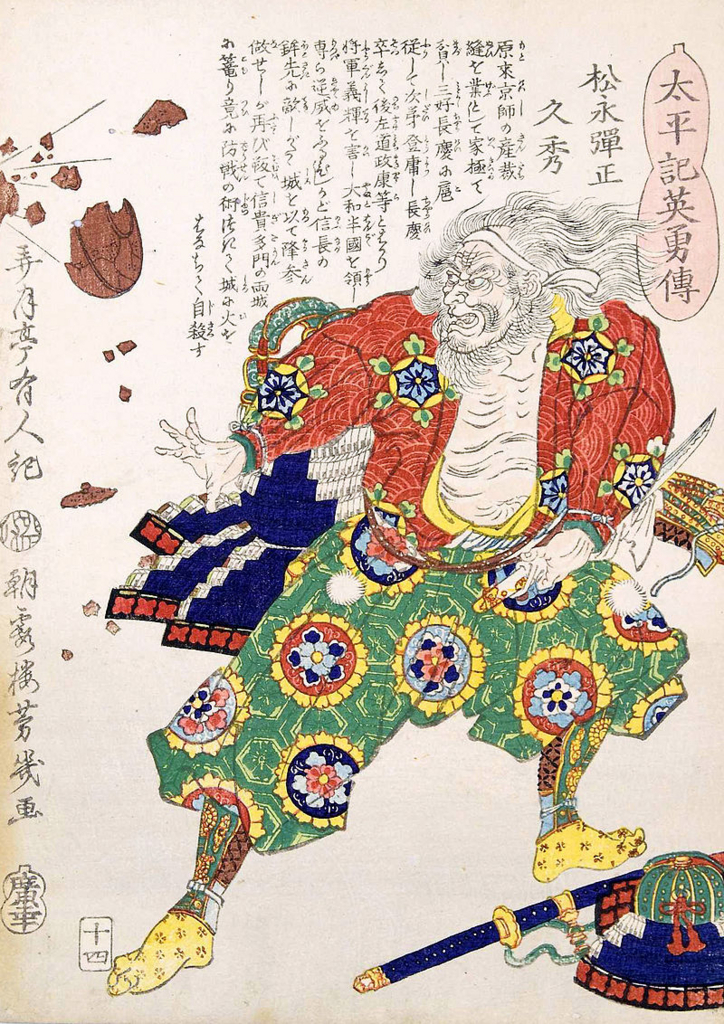 太平記英勇傳
松永彈正
久秀
原来京師の産裁
縫を業として家極て
貧し三好長慶に扈
従して次第登庸し長慶
卒して後左道政康等とはかり
将軍義輝を害し大和半國を領し
専ら逆威をふるひしかど信長の
鉾先に敵しがたく城を以て降参
做せしが再び叛て信貴多門の両城
に篭り竟に防戦の術つきて城に火を
はなちて自殺す
弄月亭有人記
朝霞楼芳幾画
十四